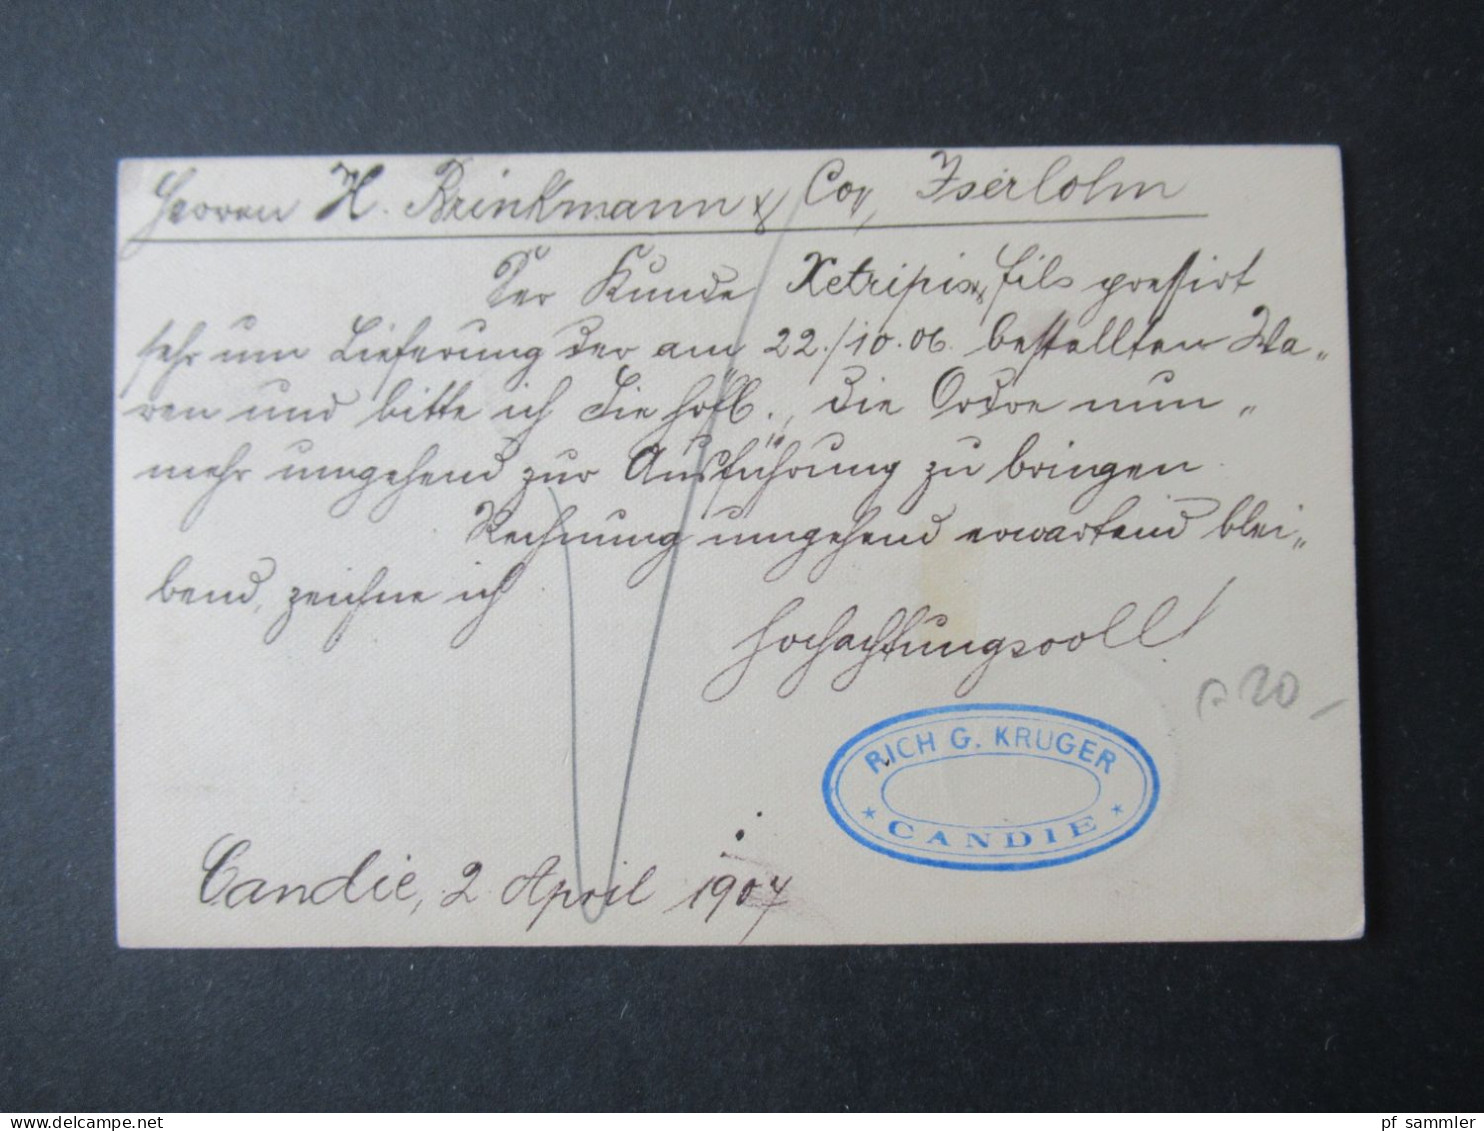 Herren H. Brinkmann & Co, Iserlohn
Der Kunde Xetripis & fils pressirt
sehr um Lieferung der am 22./10.06. bestellten Wa„
ren und bitte ich Sie höfl., die Ordre nun„
mehr umgehend zur Ausführung zu bringen.
Rechnung umgehend erwartend blei„
bend, zeichne ich
Hochachtungsvoll!
20-
RICH G. KRUGER
* CANDIE *
Candie, 2 April 1907
pf_sammler